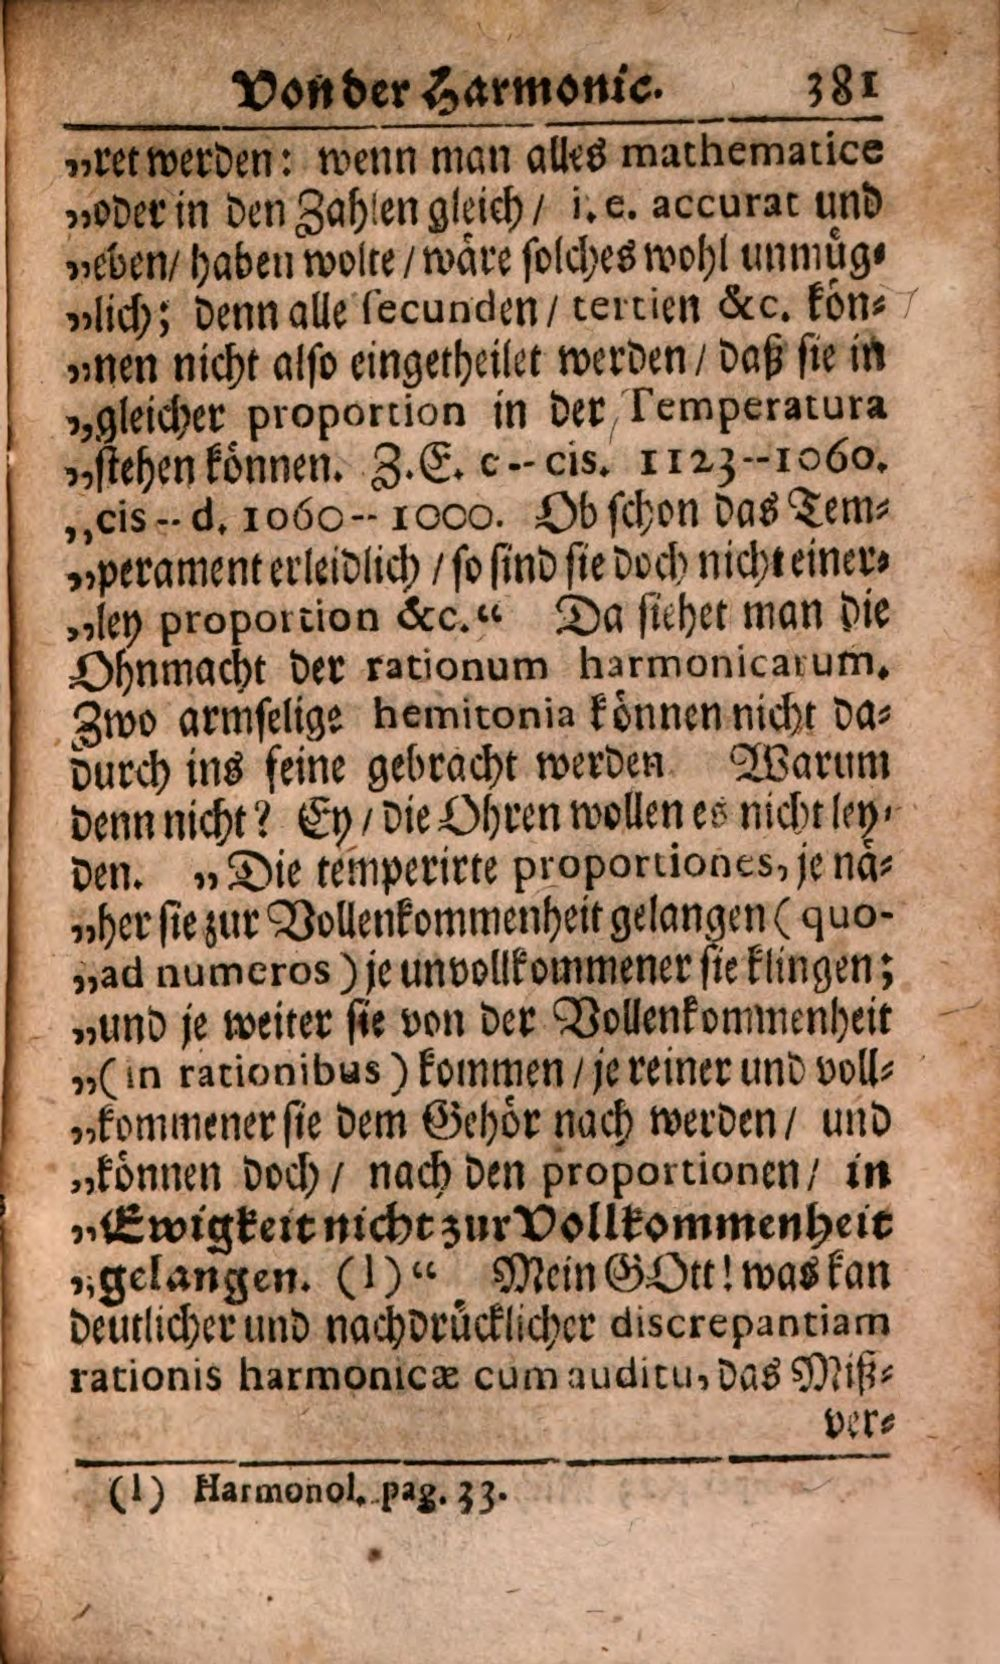 Von der Harmonie. 381
„ret werden: wenn man alles mathematice
„oder in den Zahlen gleich / i. e. accurat und
„eben / haben wolte / wäre solches wohl unmüg-
„lich; denn alle secunden / tertien &c. kön-
„nen nicht also eingetheilet werden / daß sie in
„gleicher proportion in der Temperatura
„stehen können. Z. E. c -- cis. 1123 -- 1060.
„cis -- d. 1060 -- 1000. Ob schon das Tem-
„perament erleidlich / so sind sie doch nicht einer-
„ley proportion &c.“ Da siehet man die
Ohnmacht der rationum harmonicarum.
Zwo armselige hemitonia können nicht da-
durch ins feine gebracht werden. Warum
denn nicht? Ey / die Ohren wollen es nicht ley-
den. „Die temperirte proportiones, je nä-
„her sie zur Vollenkommenheit gelangen ( quo-
„ad numeros ) je unvollkommener sie klingen;
„und je weiter sie von der Vollenkommenheit
„( in rationibus ) kommen / je reiner und voll-
„kommener sie dem Gehör nach werden / und
„können doch / nach den proportionen / in
„Ewigkeit nicht zur Vollkommenheit
„gelangen. (l)“ Mein GOtt! was kan
deutlicher und nachdrücklicher discrepantiam
rationis harmonicæ cum auditu, das Miß-
ver-
(l) Harmonol. pag. 33.